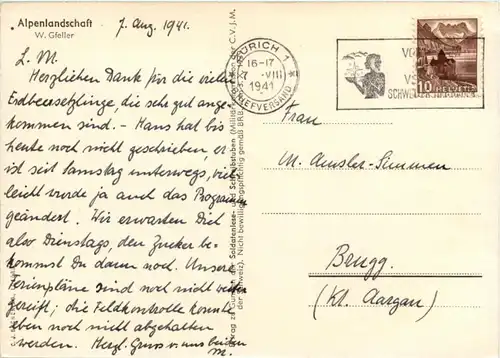 Alpenlandschaft
W. Gfeller
7. Aug. 1941.
L. M.
Herzlichen Dank für die vielen
Erdbeersetzlinge, die sehr gut ange-
kommen sind. – Hans hat bis
heute noch nicht geschrieben, er
ist seit Samstag unterwegs, viel
leicht wurde ja auch das Programm
geändert. Wir erwarten Dich
also Dienstags, den Zucker be-
kommst Du dann noch. Unsere
Ferienpläne sind noch nicht weiter
gereift; die Feldkontrolle konnte
eben noch nicht abgehalten
werden. Herzl. Gruss v. uns beiden
M.
der Soldatenlese- und Schreibstuben
der Schweiz). Nicht bewilligungspflichtig gemäß BRB
ZÜRICH 1
16-17
7. -VIII
1941
BRIEFVERSAND
10 HELVETIA
Frau
M. Amsler-Simmen
Brugg.
(Kt. Aargau)